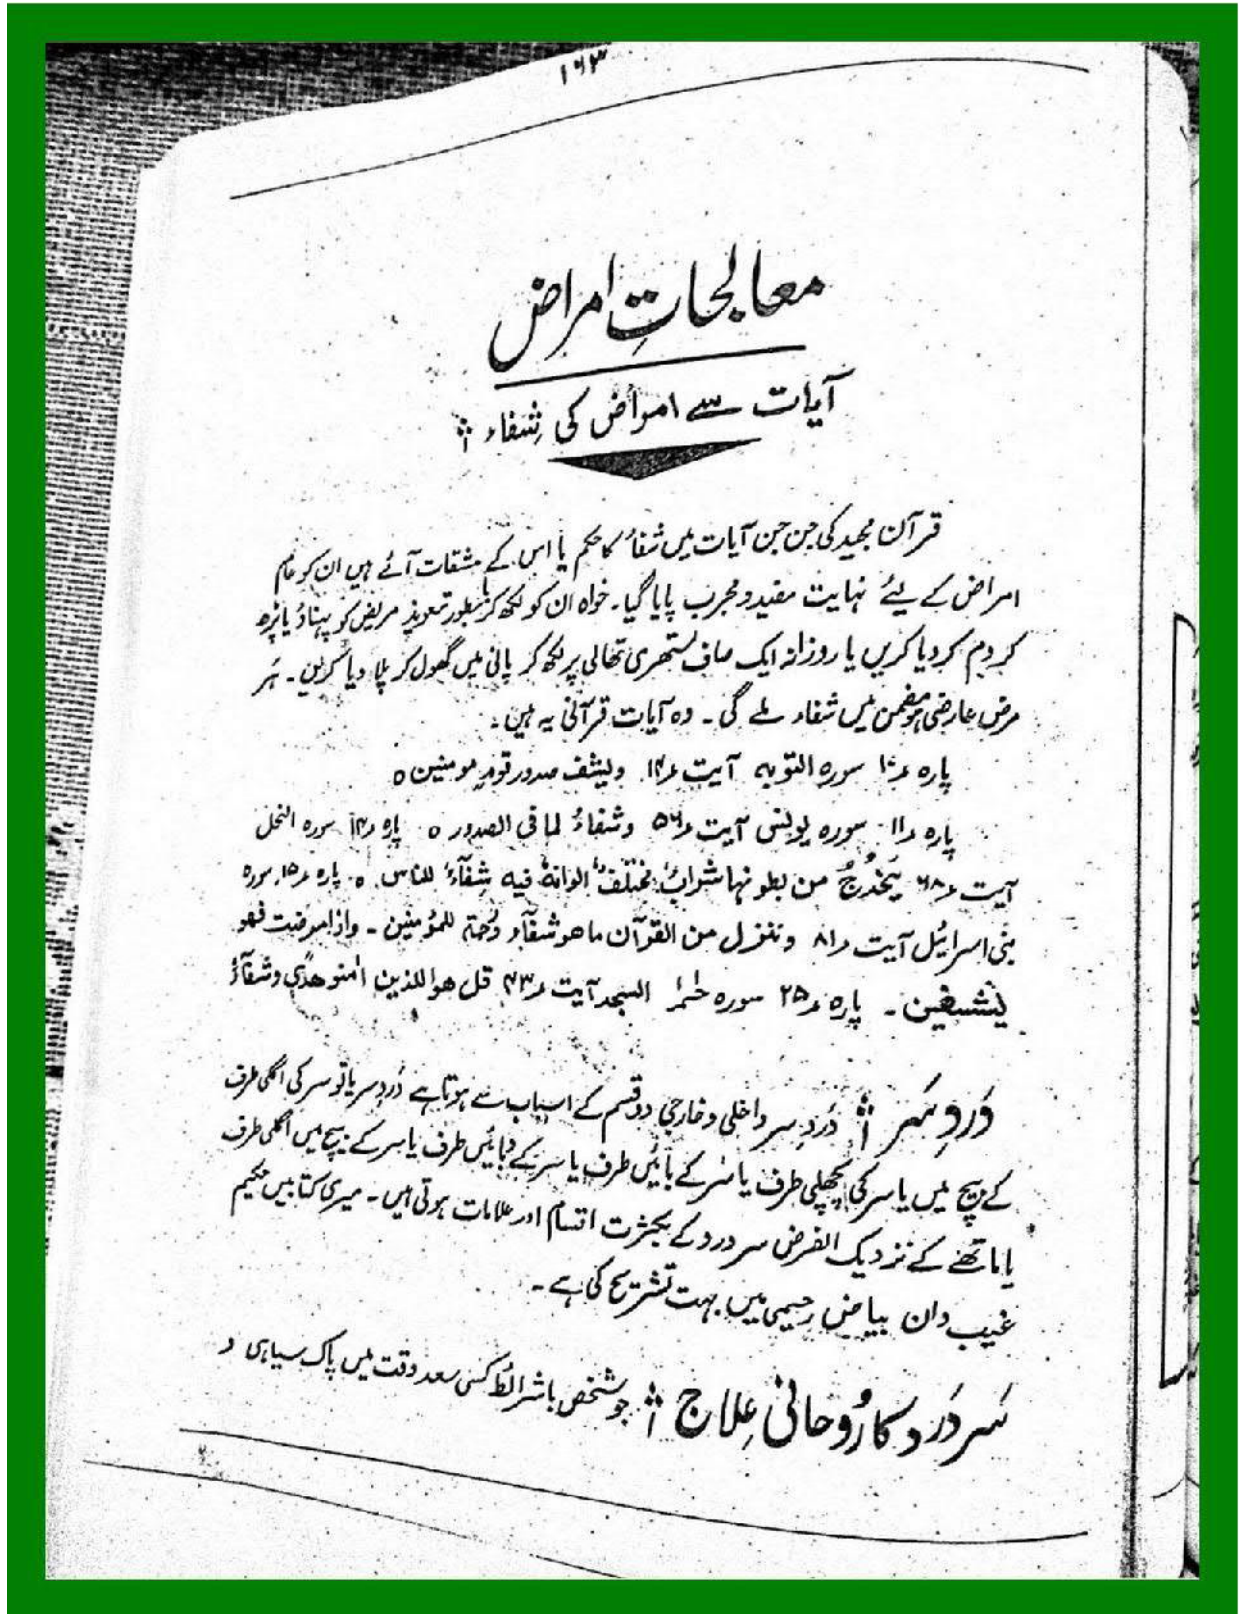 ۱۶۳
معالجاتِ امراض
آیات سے امراض کی شِفاء
قرآن مجید کی جن جن آیات میں شفاءُ کا حکم یا اس کے مشتقات آئے ہیں ان کو عام
امراض کے لیئے نہایت مفید و مجرب پایا گیا۔ خواہ ان کو لکھ کر بطور تعویذ مریض کو پہناؤ یا پڑھ
کر دم کر دیا کریں یا روزانہ ایک صاف ستھری تھالی پر لکھ کر پانی میں گھول کر پلا دیا کریں۔ ہر
مرض عارضی ہو مضمن میں شفاء ملے گی۔ وہ آیات قرآنی یہ ہیں۔
پارہ ۱۰ سورہ التوبہ آیت ۱۴ ویشف صدور قومٍ مومنین ٥
پارہ ۱۱ سورہ یونس آیت ۵۶ وشفاءُ لما فی الصدور ٥ پارہ ۱۴ سورہ النحل
آیت ۶۸ یَخرُجُ من بطونہا شرابُ مختلفُ الوانہُ فیہ شِفَآءُ للناس ٥ پارہ ۱۵ سورہ
بنی اسرائیل آیت ۸۱ وننزل من القرآن ما ھو شفآء ورَحمۃ للمؤمنین۔ واذا مرضت فھو
یشفین۔ پارہ ۲۵ سورہ حٰمٓ السجد آیت ۴۳ قل ھو اللذین اٰمنو ھدًی وشفآءُ
دَردِ سَر دَردِ سر داخلی و خارجی دو قسم کے اسباب سے ہوتا ہے دَردِ سر یا تو سر کی اگلی طرف
کے بیچ میں یا سر کی پچھلی طرف یا سَر کے بائیں طرف یا سر کے دائیں طرف یا سر کے بیچ میں اگلی طرف
یا ماتھے کے نزدیک الغرض سر درد کے بکثرت اقسام اور علامات ہوتی ہیں۔ میری کتابیں حکیم
غیب دان بیاض رحیمی میں بہت تشریح کی ہے۔
سَر دَرد کا رُوحانی عِلاج جو شخص باشرائط کسی سعد وقت میں پاک سیاہی و